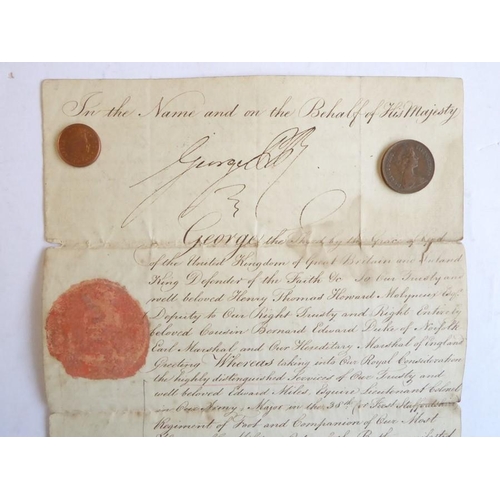 In the Name and on the Behalf of His Majesty
George PR
George the Third by the Grace of God
of the United Kingdom of Great Britain and Ireland
King Defender of the Faith &c To Our Trusty and
well beloved Henry Thomas Howard Molyneux Esqr
Deputy to Our Right Trusty and Right Entirely
beloved Cousin Bernard Edward Duke of Norfolk
Earl Marshal and Our Hereditary Marshal of England
Greeting Whereas taking into Our Royal Consideration
the highly distinguished Services of Our Trusty and
well beloved Edward Miles, Esquire Lieutenant Colonel
in Our Army, Major in the 38th (or First Staffordshire)
Regiment of Foot and Companion of Our Most